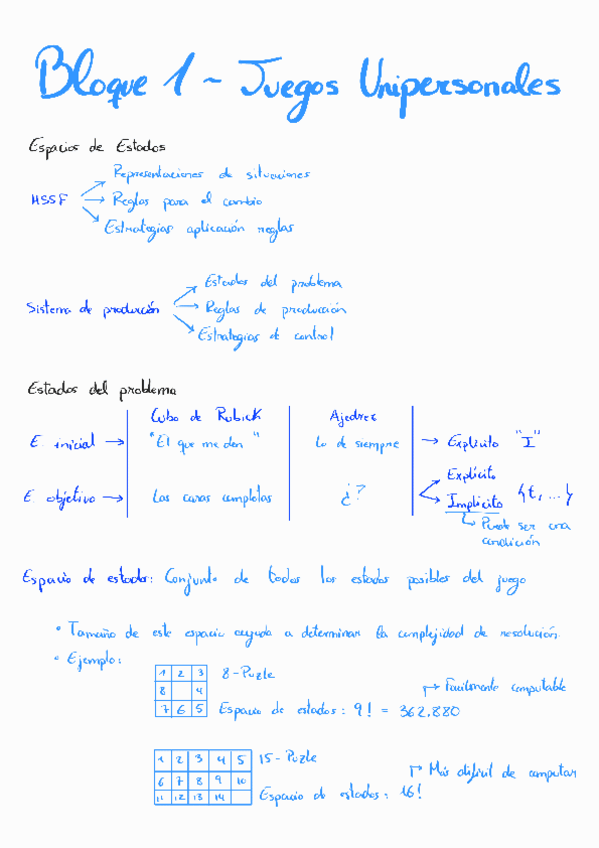 Bloque 1 ~ Juegos Unipersonales
Espacios de Estados
Representaciones de situaciones
HSSF → Reglas para el cambio
Estrategias aplicación reglas
Estados del problema
Sistema de producción → Reglas de producción
Estrategias de control
Estados del problema
Cubo de Rubick Ajedrez
E. inicial → "El que me den" Lo de siempre → Explícito "I"
Explícito
E. objetivo → Las caras completas ¿? Implícito {t, ...}
↳ Puede ser una
condición
Espacio de estados: Conjunto de todos los estados posibles del juego
• Tamaño de este espacio ayuda a determinar la complejidad de resolución.
• Ejemplo:
1 2 3 8-Puzle
8 4 ↱ Facilmente computable
7 6 5 Espacio de estados: 9! = 362.880
1 2 3 4 5 15-Puzle
6 7 8 9 10 ↱ Más difícil de computar
11 12 13 14 Espacio de estados: 16!